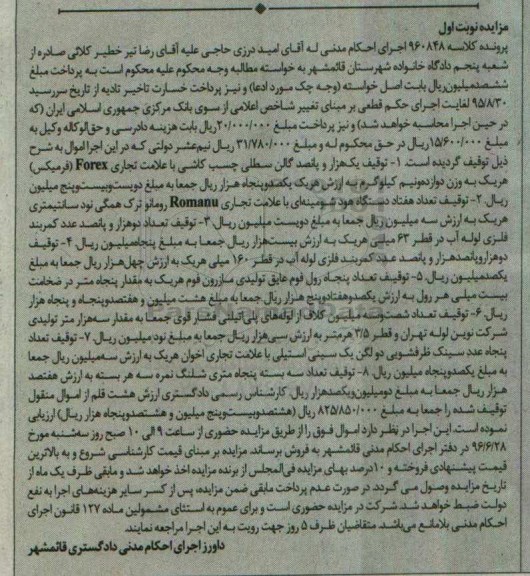 مزایده نوبت اول
پرونده کلاسه ۹۶۰۸۴۸ اجرای احکام مدنی له آقای امید درزی حاجی علیه آقای رضا تیر خطیر کلائی صادره از
شعبه پنجم دادگاه خانواده شهرستان قائمشهر به خواسته مطالبه وجه محکوم علیه محکوم است به پرداخت مبلغ
ششصدمیلیون‌ریال بابت اصل خواسته (وجه چک مورد ادعا) و نیز پرداخت خسارت تاخیر تادیه از تاریخ سررسید
۹۵/۸/۳۰ لغایت اجرای حکم قطعی بر مبنای تغییر شاخص اعلامی از سوی بانک مرکزی جمهوری اسلامی ایران (که
در حین اجرا محاسبه خواهد شد) و نیز پرداخت مبلغ ۲۰/۰۰۰/۰۰۰ریال بابت هزینه دادرسی و حق‌الوکاله وکیل به
مبلغ ۱۵/۶۰۰/۰۰۰ریال در حق محکوم له و مبلغ ۳۱/۷۸۰/۰۰۰ ریال نیم‌عشر دولتی که در این اجرا اموال به شرح
ذیل توقیف گردیده است. ۱- توقیف یک‌هزار و پانصد گالن سطلی چسب کاشی با علامت تجاری Forex (فرمیکس)
هریک به وزن دوازده‌ونیم کیلوگرم به ارزش هریک یکصدوپنجاه هزار ریال جمعا به مبلغ دویست‌وبیست‌وپنج میلیون
ریال. ۲- توقیف تعداد هفتاد دستگاه هود شومینه‌ای با علامت تجاری Romanu رومانو ترک همگی نود سانتیمتری
هریک به ارزش سه میلیون‌ریال جمعا به مبلغ دویست میلیون ریال. ۳- توقیف تعداد دوهزار و پانصد عدد کمربند
فلزی لوله آب در قطر ۶۳ میلی هریک به ارزش بیست‌هزار ریال جمعا به مبلغ پنجاه‌میلیون ریال. ۴- توقیف
دوهزاروپانصدهزار و پانصد عدد کمربند فلزی لوله آب در قطر ۱۶۰ میلی هریک به ارزش چهل‌هزار ریال جمعا به مبلغ
یکصدمیلیون ریال. ۵- توقیف تعداد پنجاه رول فوم عایق تولیدی مازرون فوم هریک به مقدار پنجاه متر در ضخامت
بیست میلی هر رول به ارزش یکصدوهفتادوپنج هزار ریال جمعا به مبلغ هشت میلیون و هفتصدوپنجاه و پنجاه هزار
ریال. ۶- توقیف تعداد شصت‌وسه میلیون کلاف از لوله‌های پلی‌اتیلنی فشار قوی جمعا به مقدار سه‌هزار متر تولیدی
شرکت نوین لوله تهران و قطر ۳/۵ هرمتر به ارزش سی‌هزار ریال جمعا به مبلغ نود میلیون ریال. ۷- توقیف تعداد
پنجاه عدد سینک ظرفشویی دو لگن یک سینی استیلی با علامت تجاری اخوان هریک به ارزش سه‌میلیون ریال جمعا
به مبلغ یکصدوپنجاه میلیون ریال. ۸- توقیف تعداد سه بسته پنجاه متری شلنگ نمره سه هر بسته به ارزش هفتصد
هزار ریال جمعا به مبلغ دومیلیون‌ویکصدهزار ریال. کارشناس رسمی دادگستری ارزش هشت قلم از اموال منقول
توقیف شده را جمعا به مبلغ ۸۲۵/۸۵۰/۰۰۰ ریال (هشتصدوبیست‌وپنج میلیون و هشتصدوپنجاه هزار ریال) ارزیابی
نموده است. این اجرا در نظر دارد اموال فوق را از طریق مزایده حضوری از ساعت ۹ الی ۱۰ صبح روز سه‌شنبه مورخ
۹۶/۶/۲۸ در دفتر اجرای احکام مدنی قائمشهر به فروش برساند. مزایده بر مبنای قیمت کارشناسی شروع و به بالاترین
قیمت پیشنهادی فروخته و ۱۰درصد بهای مزایده فی‌المجلس از برنده مزایده اخذ خواهد شد و مابقی ظرف یک ماه از
تاریخ مزایده وصول می گردد. در صورت عدم پرداخت مابقی ضمن مزایده، پس از کسر سایر هزینه‌های اجرا به نفع
دولت ضبط خواهد شد. شرکت در مزایده حضوری است و برای عموم به استثنای مشمولین ماده ۱۲۷ قانون اجرای
احکام مدنی بلامانع می‌باشد. متقاضیان ظرف ۵ روز جهت رویت به این اجرا مراجعه نمایند.
داورز اجرای احکام مدنی دادگستری قائمشهر